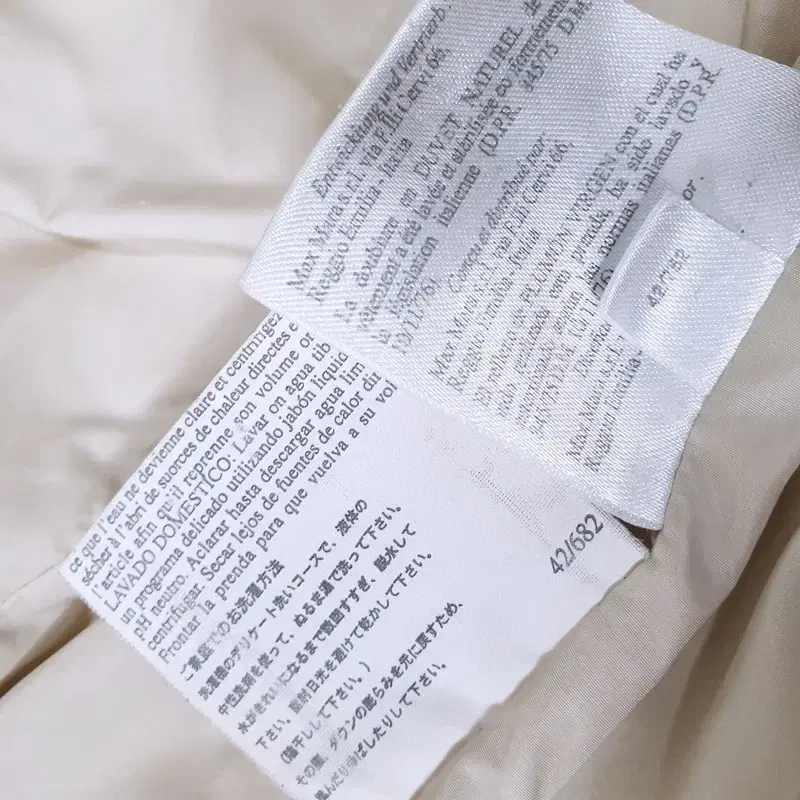 Entwicklung und Vermarb.
Max Mara s.r.l. via F.lli Cervi 66
Reggio Emilia - Italia
La doublure en DUVET NATUREL de
vêtement a été lavée et stérilisée conformément
la législation italienne (D.P.R. 845/75 D.M.
10/11/76)
Conçu et distribué par:
Max Mara s.r.l. via F.lli Cervi 66
Reggio Emilia - Italia
El relleno de PLUMÓN VIRGEN con el cual ha
sido realizada esta prenda, ha sido lavado y
normas italianas (D.P.R.
845/75 D.M. 10/11/76)
or:
Max Mara s.r.l.
Reggio Emilia
42/752
ce que l'eau ne devienne claire et centrifugez
sécher à l'abri de suorces de chaleur directes e
l'article afin qu'il reprenne son volume or
LAVADO DOMESTICO: Lavar on agua tib
un programa delicado utilizando jabón líquid
pH neutro. Aclarar hasta descargar agua lim
centrifugar. Secar lejos de fuentes de calor du
Frontar la prenda para que vuelva a su vol
ご家庭でのお洗濯方法
洗濯機のデリケート洗いコースで、液体の
中性洗剤を使って、ぬるま湯で洗って下さい。
水がきれいになるまで数回すすぎ、脱水して
下さい。直射日光を避けて乾かして下さい。
(陰干しして下さい。)
その際、ダウンの膨らみを元に戻すため、
揉んだり伸ばしたりして下さい。
42/682